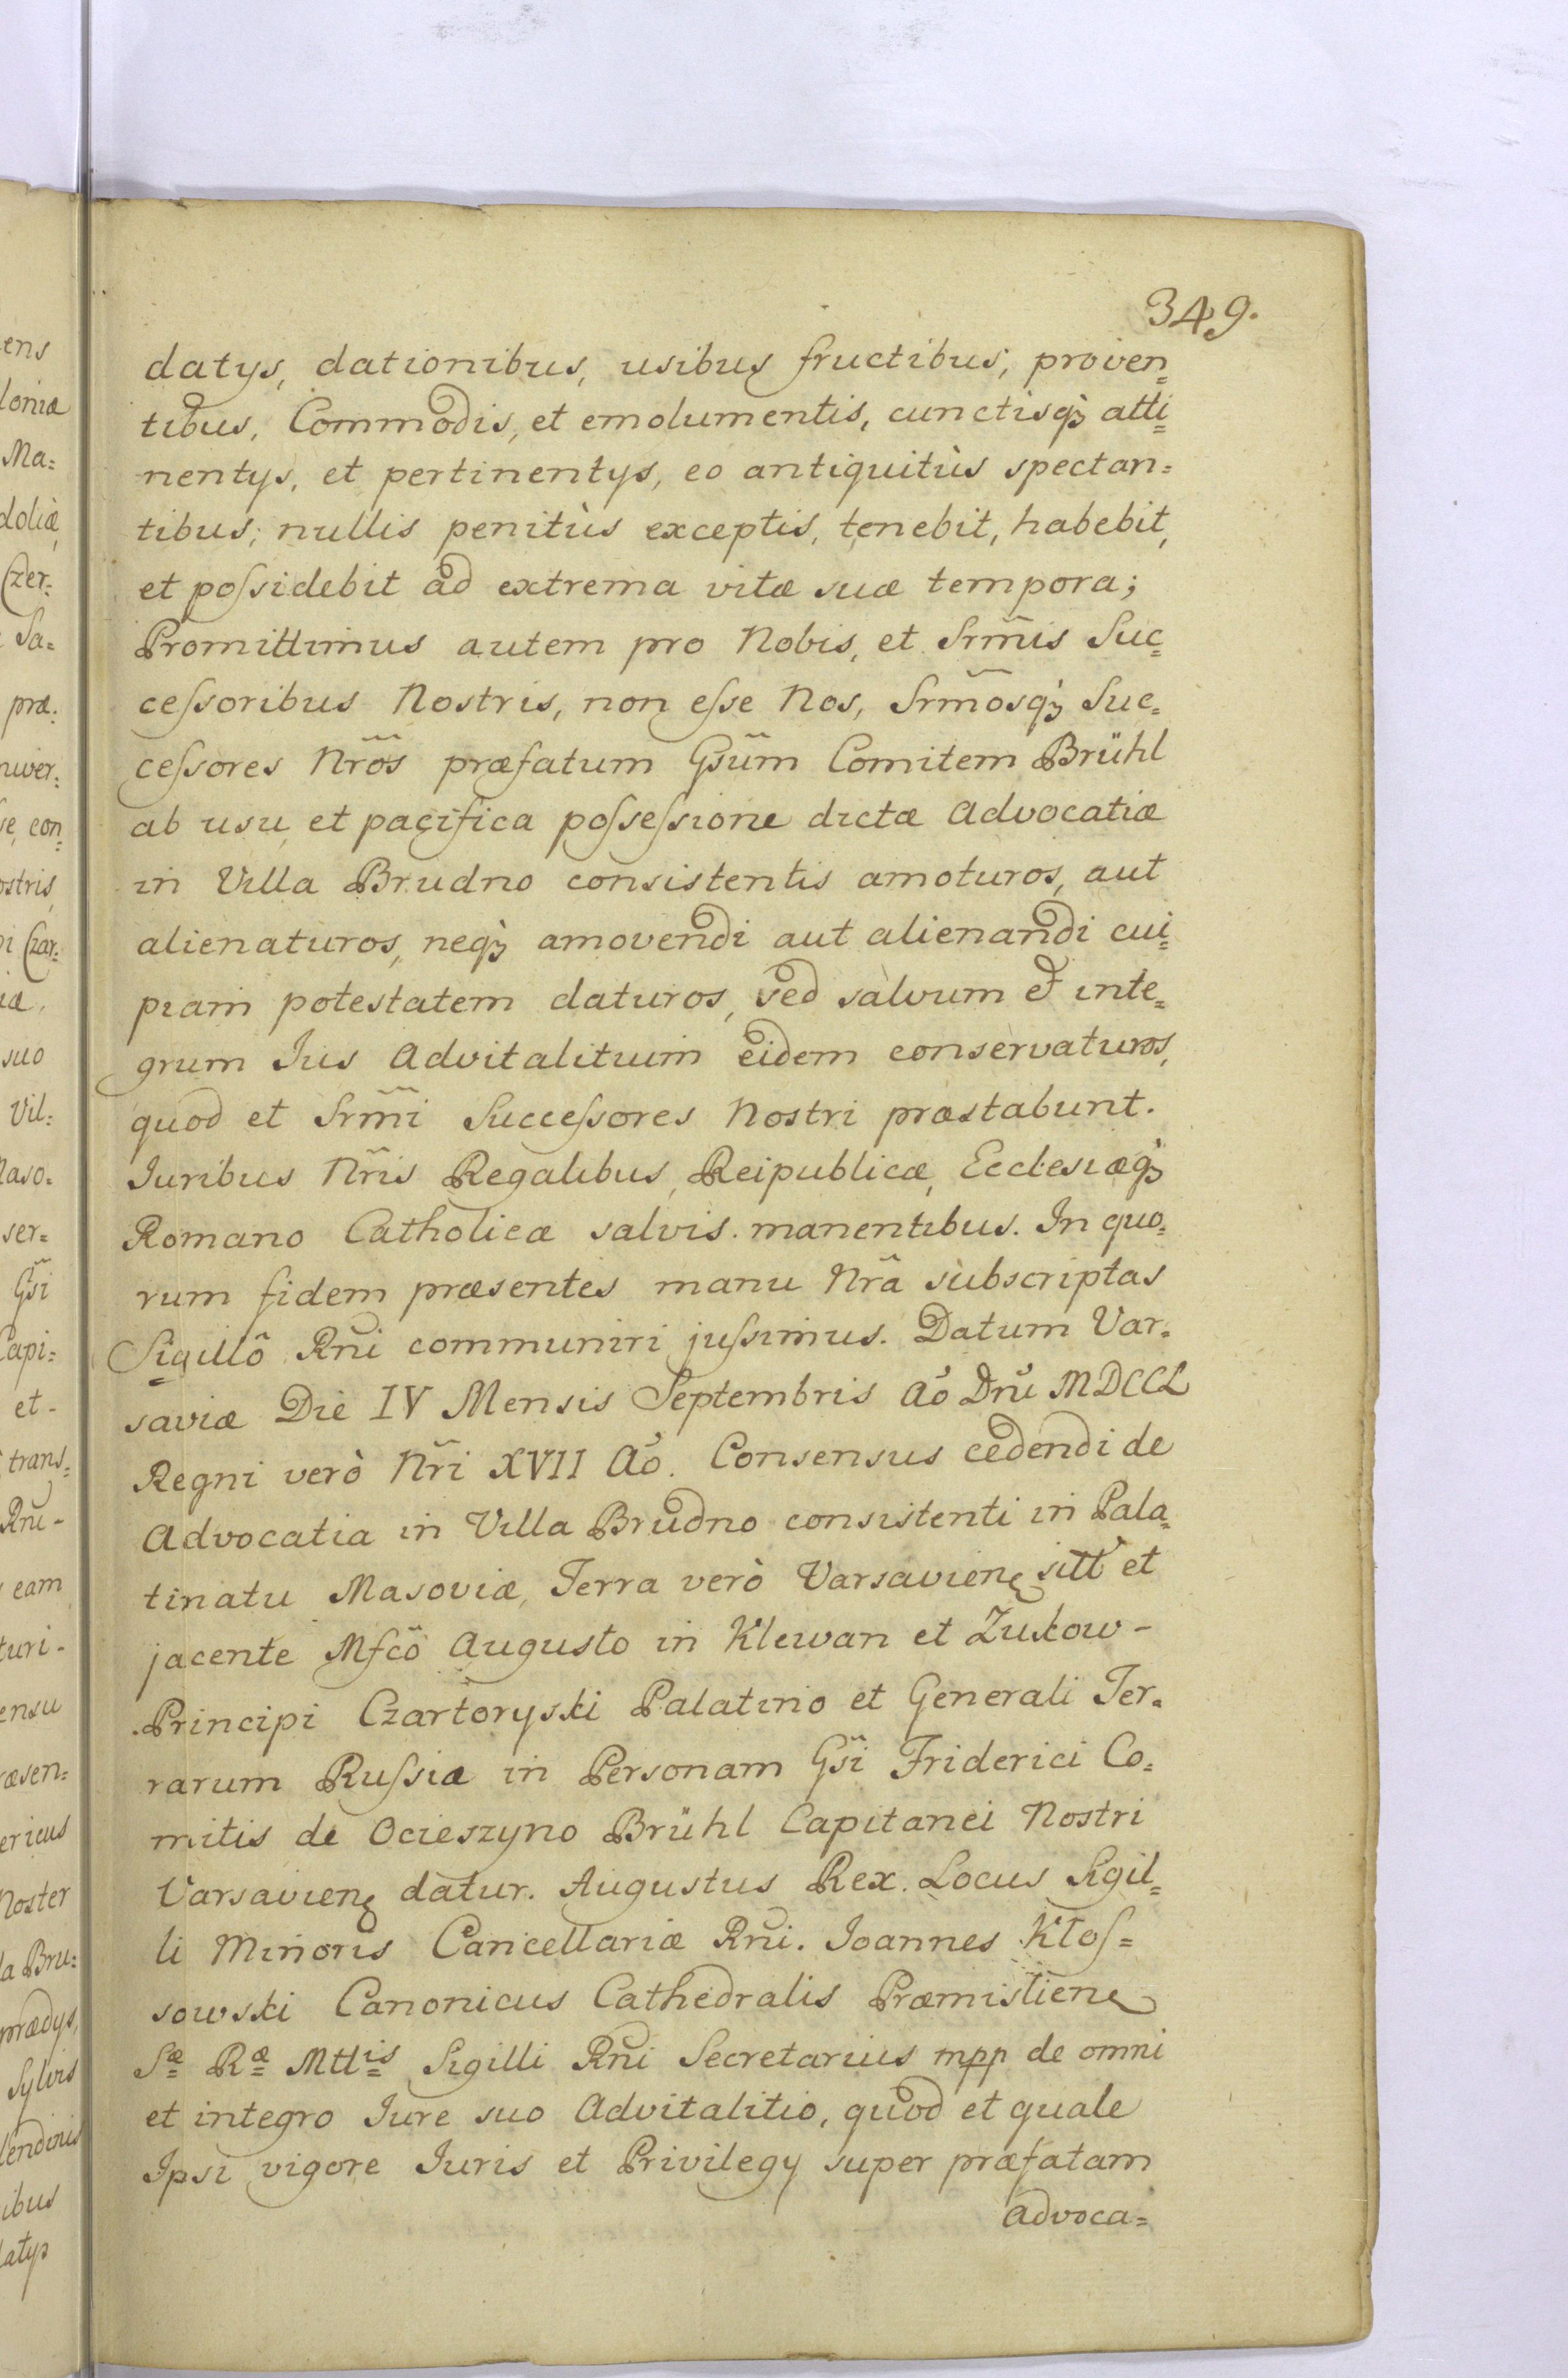 349.
datys, dationibus, usibus fructibus, proven=
tibus, Commodis, et emolumentis, cunctisqȝ atti=
nentys, et pertinentys, eo antiquitùs spectan=
tibus, nullis penitùs exceptis, tenebit, habebit,
et poſsidebit ad extrema vitæ suæ tempora;
Promittimus autem pro Nobis, et Srm̃is Suc=
ceſsoribus Nostris, non eſse Nos, Srm̃osqȝ Suc=
ceſsores Nr̃os præfatum Gsũm Comitem Brühl
ab usu et pacifica poſseſsione dictæ Advocatiæ
in Villa Brudno consistentis amoturos, aut
alienaturos, neqȝ amovendi aut alienandi cui=
piam potestatem daturos, sed salvum et inte=
grum Jus Advitalituim eidem conservaturos,
quod et Srm̃i Succeſsores Nostri præstabunt.
Juribus Nr̃is Regalibus, Reipublicæ, Ecclesiæqȝ
Romano Catholicæ salvis manentibus. In quo=
rum fidem præsentes manu Nrâ subscriptas
Sigillô Rñi communiri juſsimus. Datum Var=
saviæ Die IV Mensis Septembris Aõ Dnĩ MDCCL
Regni verò Nr̃i XVII Aõ. Consensus cedendi de
Advocatia in Villa Brudno consistenti in Pala=
tinatu Masoviæ, Terra verò Varsavienę sitt et
jacente Mfcõ Augusto in Klewan et Zukow-
Principi Czartoryski Palatino et Generali Ter=
rarum Ruſsiæ in Personam Gsĩ Friderici Co=
mitis de Ocieszyno Brühl Capitanei Nostri
Varsavienę datur. Augustus Rex. Locus Sigil=
li Minoris Cancellariæ Rñi. Joannes Kłoſ=
sowski Canonicus Cathedralis Præmislienę
Sæ Ræ Mttis Sigilli Rñi Secretarius mpp de omni
et integro Jure suo Advitalitio, quod et quale
Ipsi vigore Juris et Privilegy super præfatam
Advoca=
ens
loniæ
Ma=
doliæ,
Czer=
Sa=
præ=
niver=
se, con=
ostris,
i Czar=
iæ,
suo
Vil=
Maso=
ser=
Gsĩ
Capi=
et-
trans=
Rñi-
eam
turi-
ensu
ræsen=
ericus
Noster
la Bru=
prædys,
sylvis
ibus
latys